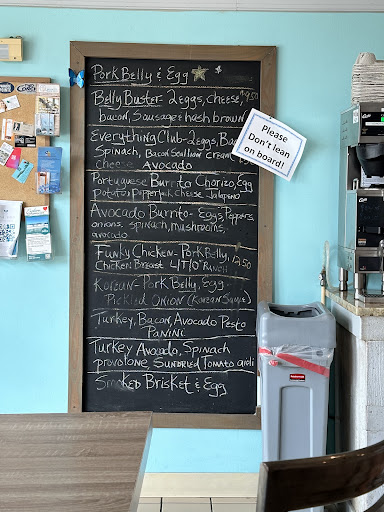 Pork Belly & Egg
Belly Buster - 2 eggs, cheese,
bacon, Sausage & hash brown
Everything Club - 2 eggs,
Spinach, Bacon Scallion cream
cheese Avocado
Portuguese Burrito Chorizo, Egg
potato Pepperjack cheese Jalapeno
Avocado Burrito - Eggs, Peppers,
onions, spinach, mushrooms,
avocado
Funky Chicken - Pork Belly, 12.50
Chicken Breast L/T/O Ranch
Korean - Pork Belly, Egg
Pickled Onion (Korean Sauce)
Turkey, Bacon, Avocado Pesto
Panini
Turkey Avocado, Spinach
provolone, Sundried Tomato aioli
Smoked Brisket & Egg
Please
Don't lean
on board!